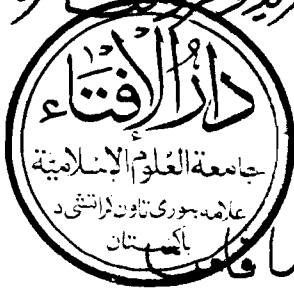 دارالإفتاء
جامعة العلوم الإسلامية
علامه بنوری تاون کراتشی ۵
باکستان